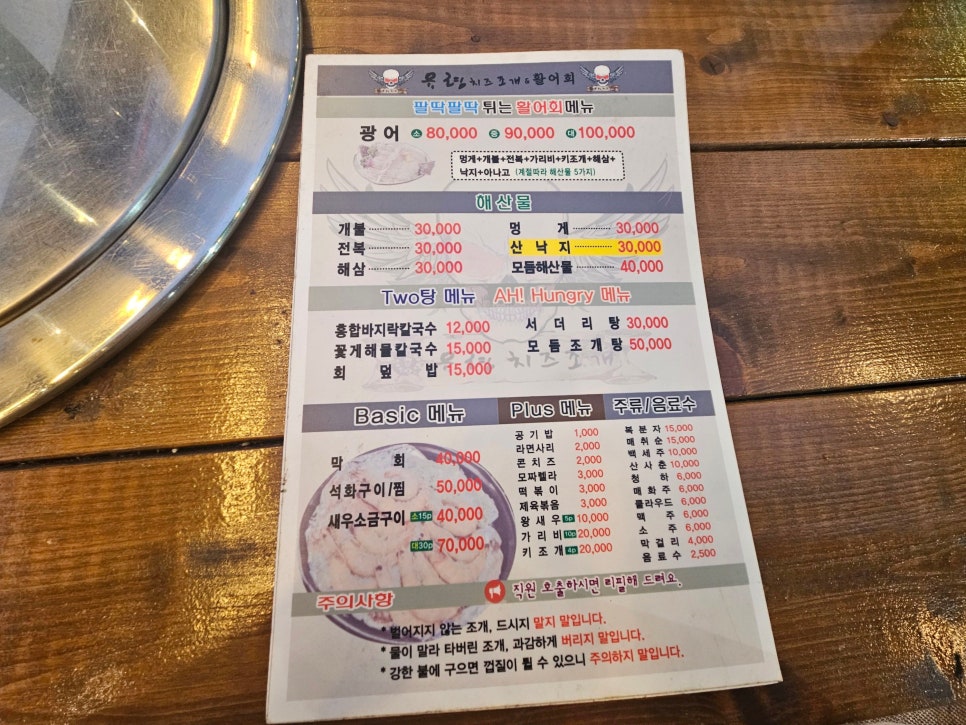 유랑 치즈조개&활어회
팔딱팔딱 튀는 활어회메뉴
광어 소 80,000 중 90,000 대 100,000
멍게+개불+전복+가리비+키조개+해삼+
낙지+아나고 (계절따라 해산물 5가지)
해산물
개불 30,000 멍게 30,000
전복 30,000 산낙지 30,000
해삼 30,000 모듬해산물 40,000
Two탕 메뉴 AH! Hungry 메뉴
홍합바지락칼국수 12,000 서더리탕 30,000
꽃게해물칼국수 15,000 모듬조개탕 50,000
회덮밥 15,000
치즈조개
Basic 메뉴
막회 40,000
석화구이/찜 50,000
새우소금구이 소15p 40,000
대30p 70,000
Plus 메뉴
공기밥 1,000
라면사리 2,000
콘치즈 2,000
모짜렐라 3,000
떡볶이 3,000
제육볶음 3,000
왕새우 5p 10,000
가리비 10p 20,000
키조개 4p 20,000
주류/음료수
복분자 15,000
매취순 15,000
백세주 10,000
산사춘 10,000
청하 6,000
매화주 6,000
클라우드 6,000
맥주 6,000
소주 6,000
막걸리 4,000
음료수 2,500
직원 호출하시면 리필해 드려요.
주의사항
* 벌어지지 않는 조개, 드시지 말지 말입니다.
* 물이 말라 타버린 조개, 과감하게 버리지 말입니다.
* 강한 불에 구으면 껍질이 튈 수 있으니 주의하지 말입니다.